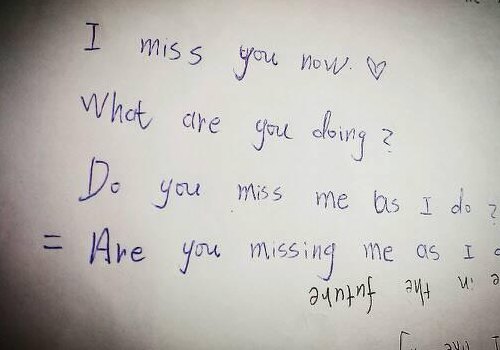 I miss you now. ♡
What are you doing?
Do you miss me as I do?
= Are you missing me as I
in the future